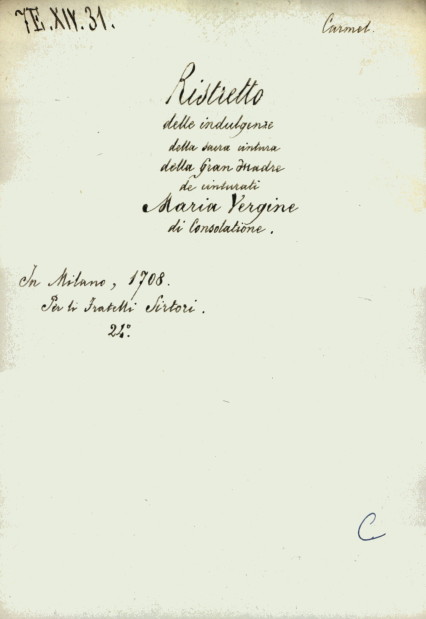 7E.XIV.31.
Carmel.
Ristretto
delle indulgenze
della sacra cintura
della Gran Madre
de cinturati
Maria Vergine
di Consolatione.
In Milano, 1708.
Per li Fratelli Sirtori.
24º.
C